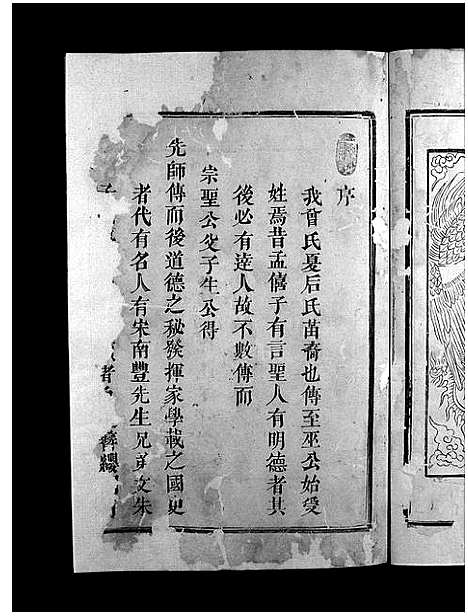 序
我曾氏夏后氏苗裔也傳至巫公始受
姓焉昔孟僖子有言聖人有明德者其
後必有達人故不數傳而
宗聖公父子生公得
先師傳而後道德之秘發揮家學載之國史
者代有名人有宋南豐先生兄弟文朱
者
纓